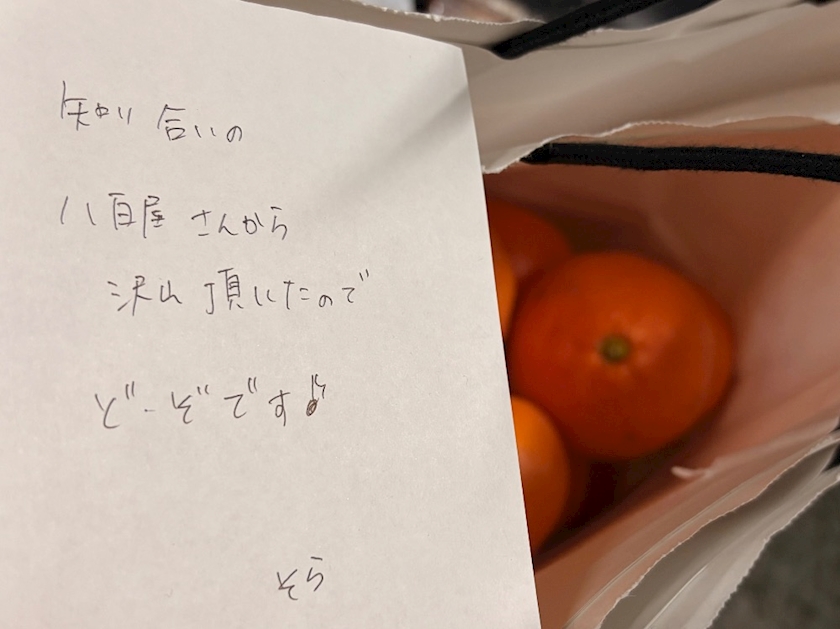 知り合いの
八百屋さんから
沢山頂いたので
ど-ぞです♪
そら